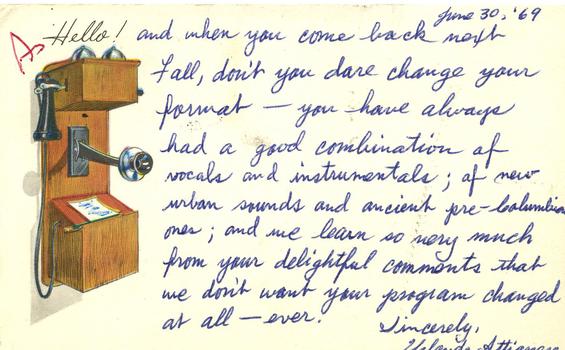 June 30, '69
As Hello! and when you come back next
Fall, don't you dare change your
format — you have always
had a good combination of
vocals and instrumentals; of new
urban sounds and ancient pre-Columbian
ones; and we learn so very much
from your delightful comments that
we don't want your program changed
at all — ever!
Sincerely,